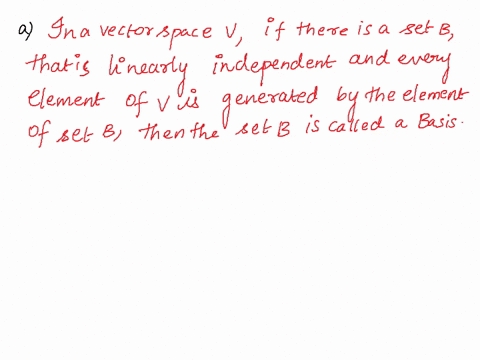 a) In a vector space V, if there is a set B,
that is linearly independent and every
element of V is generated by the element
of set B, then the set B is called a Basis.